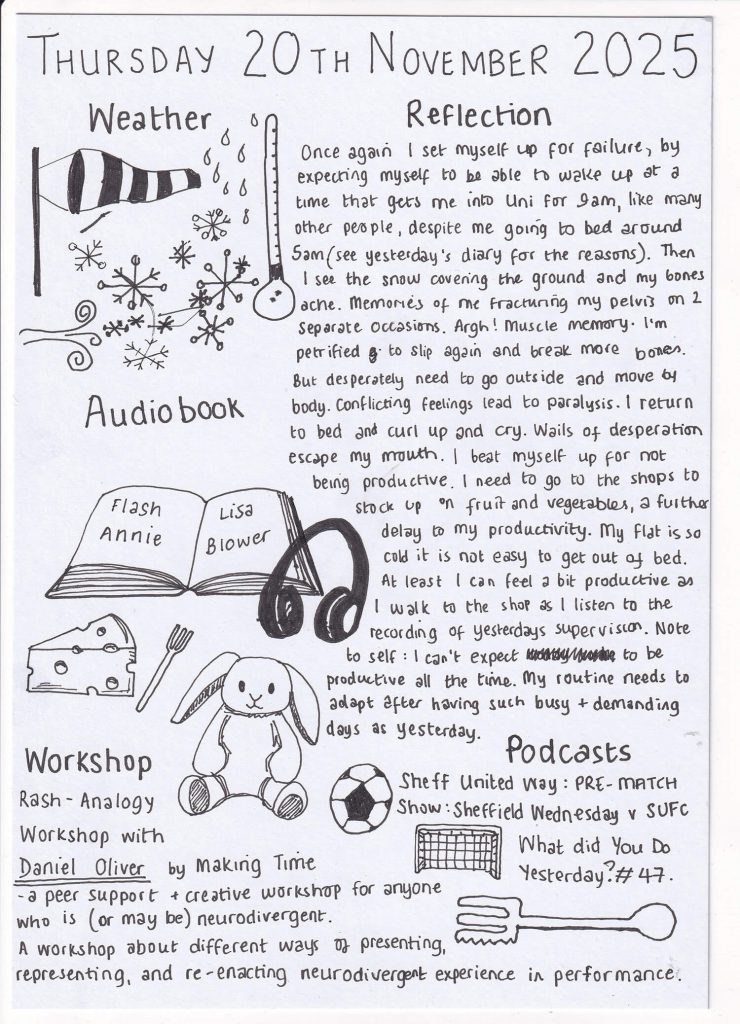 THURSDAY 20TH NOVEMBER 2025
Weather
Reflection
Once again I set myself up for failure, by
expecting myself to be able to wake up at a
time that gets me into Uni for 9am, like many
other people, despite me going to bed around
5am (see yesterday's diary for the reasons). Then
I see the snow covering the ground and my bones
ache. Memories of me fracturing my pelvis on 2
separate occasions. Argh! Muscle memory. I'm
petrified to slip again and break more bones.
But desperately need to go outside and move by
body. Conflicting feelings lead to paralysis. I return
to bed and curl up and cry. Wails of desperation
escape my mouth. I beat myself up for not
being productive. I need to go to the shops to
stock up on fruit and vegetables, a further
delay to my productivity. My flat is so
cold it is not easy to get out of bed.
At least I can feel a bit productive as
I walk to the shop as I listen to the
recording of yesterdays supervision. Note
to self: I can't expect to be
productive all the time. My routine needs to
adapt after having such busy + demanding
days as yesterday.
Audiobook
Flash
Annie
Lisa
Blower
Workshop
Rash-Analogy
Workshop with
Daniel Oliver by Making Time
- a peer support + creative workshop for anyone
who is (or may be) neurodivergent.
A workshop about different ways of presenting,
representing, and re-enacting neurodivergent experience in performance.
Podcasts
Sheff United Way: PRE-MATCH
Show: Sheffield Wednesday v SUFC
What did You Do
Yesterday? #47.